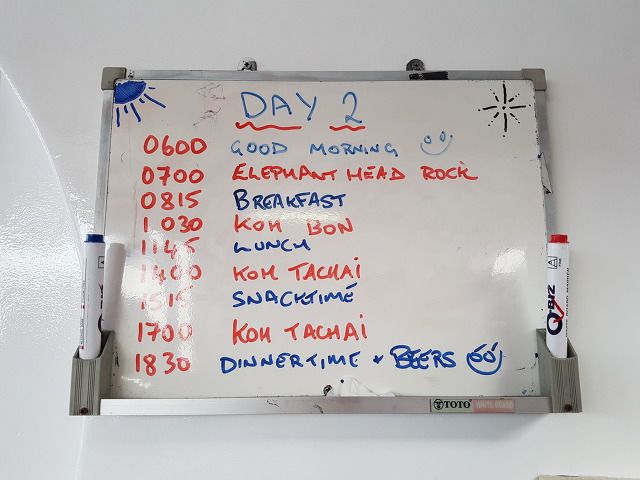 DAY 2
0600 GOOD MORNING
0700 ELEPHANT HEAD ROCK
0815 BREAKFAST
1030 KOH BON
1145 LUNCH
1400 KOH TACHAI
1515 SNACKTIME
1700 KOH TACHAI
1830 DINNERTIME + BEERS
QBIZ
QBIZ
TOTO WHITE BOARD